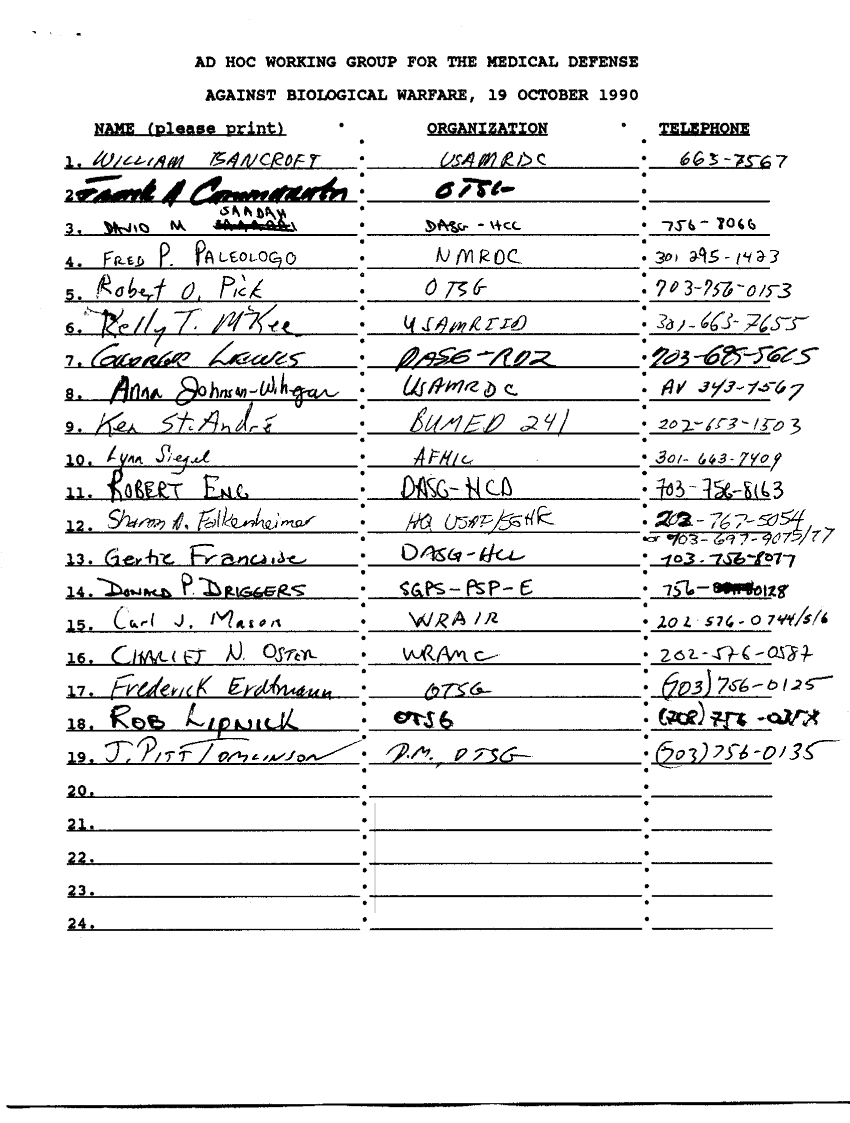 AD HOC WORKING GROUP FOR THE MEDICAL DEFENSE
AGAINST BIOLOGICAL WARFARE, 19 OCTOBER 1990
NAME (please print) ORGANIZATION TELEPHONE
1. WILLIAM BANCROFT USAMRDC 663-7567
2. Frank A OTSG
SAADAH
3. DAVID M DASG-HCC 756-8066
4. FRED P. PALEOLOGO NMRDC 301 295-1423
5. Robert O. Pick OTSG 703-756-0153
6. Kelly T. McKee USAMRIID 301-663-7655
7. GEORGE LEWIS DASG-RDZ 703-695-5615
8. Anna Johnson-Winegar USAMRDC AV 343-7567
9. Ken St. André BUMED 241 202-653-1503
10. Lynn Siegel AFMIC 301-663-7409
11. ROBERT ENG DASG-HCD 703-756-8163
12. Sharon A. Falkenheimer HQ USAF/SGHR 202-767-5054
or 703-697-9075/77
13. Gertie DASG-HCL 703-756-8077
14. DONALD P. DRIGGERS SGPS-PSP-E 756-0128
15. Carl J. Mason WRAIR 202 576-0744/5/6
16. CHARLES N. OSTER WRAMC 202-576-0587
17. Frederick Erdtmann OTSG (703)756-0125
18. ROB LIPNICK OTSG
19. J. PITT TOMLINSON P.M., OTSG (703)756-0135
20.
21.
22.
23.
24.